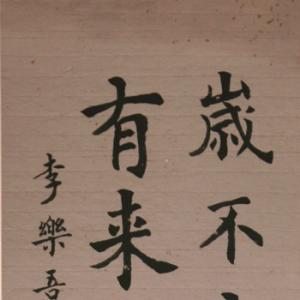 歳不
有来
李樂吾